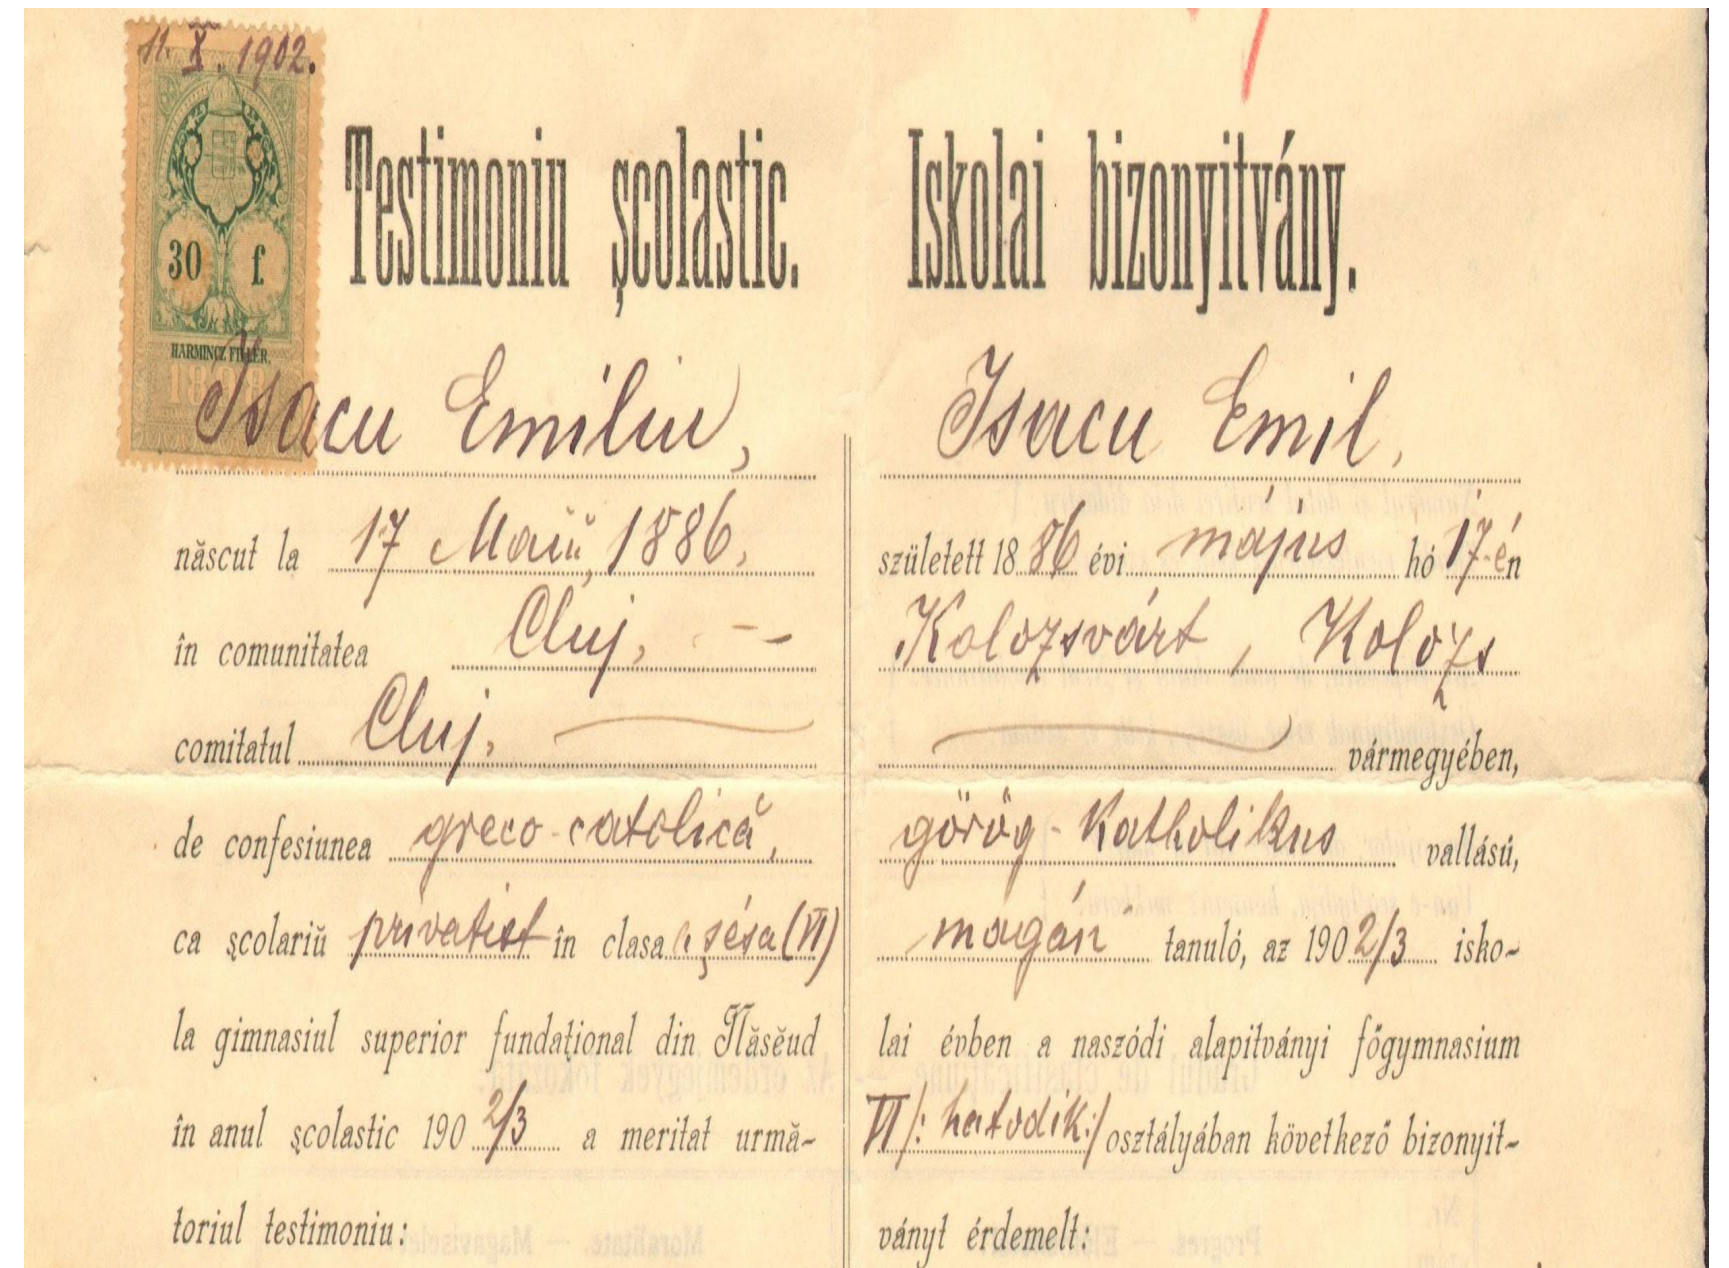 11. X. 1902.
30 f.
HARMINCZ FILLÉR.
Testimoniu şcolastic.
Isacu Emiliu,
născut la 17 Maiŭ, 1886.
în comunitatea Cluj,
comitatul Cluj,
de confesiunea greco-catolică,
ca şcolariŭ privatist în clasa a şésa (VI)
la gimnasiul superior fundaţional din Năsĕud
în anul şcolastic 1902/3 a meritat urmă-
toriul testimoniu:
Iskolai bizonyitvány.
Isacu Emil,
született 1886 évi május hó 17-én
Kolozsvárt, Kolozs
vármegyében,
görög-katholikus vallású,
magán tanuló, az 1902/3 isko-
lai évben a naszódi alapitványi főgymnasium
VI /: hatodik :/ osztályában következő bizonyit-
ványt érdemelt: